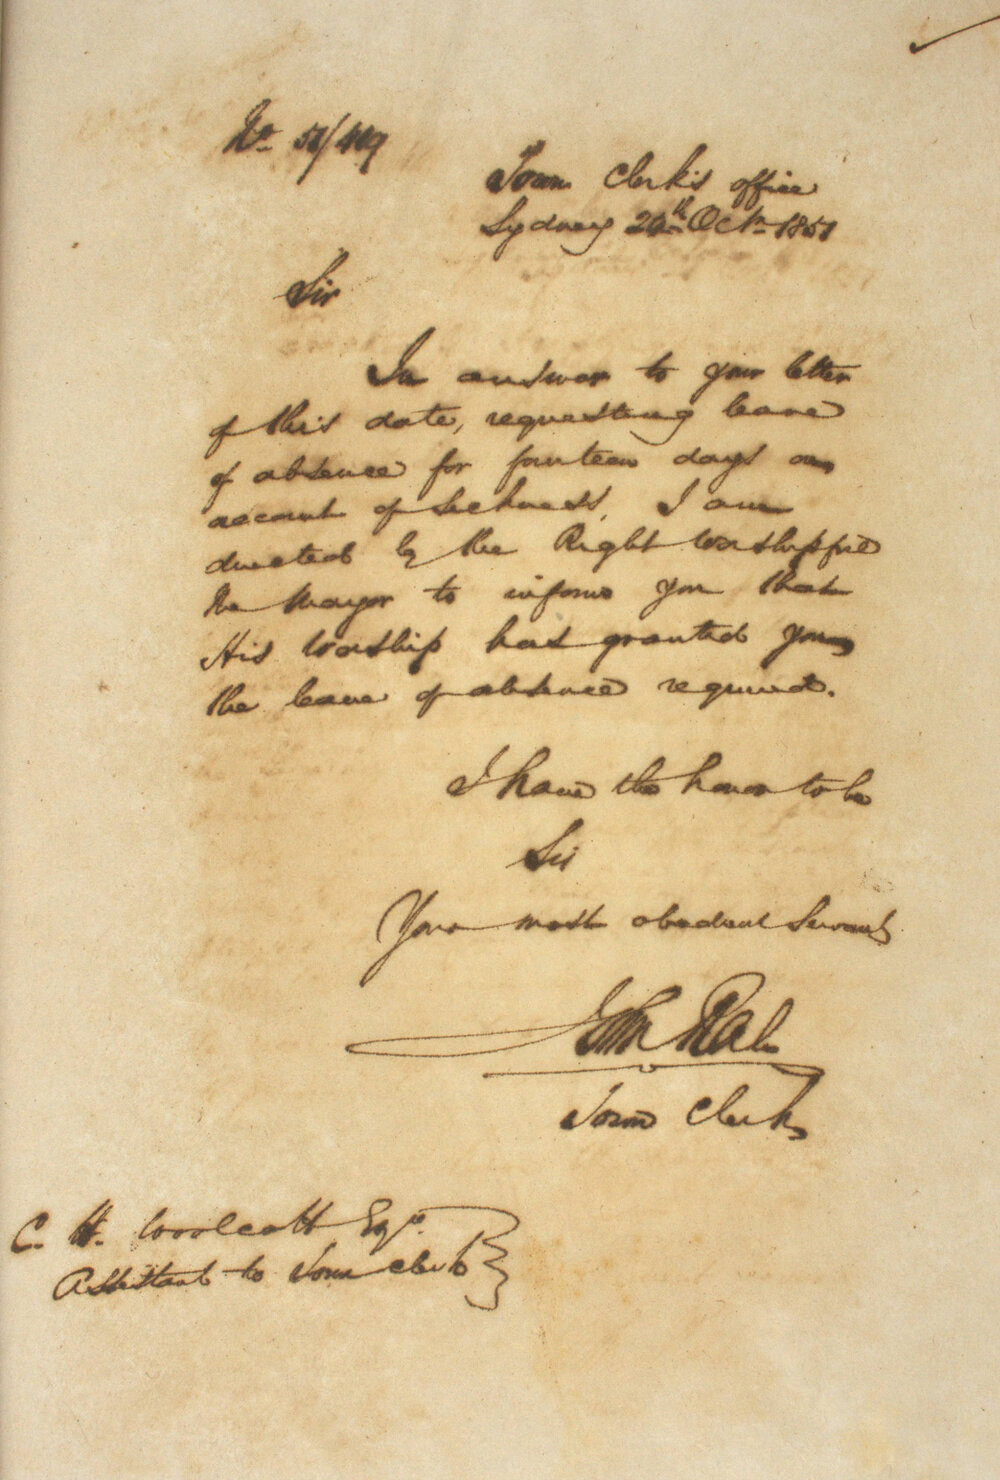 No 51/419
Town Clerk's office
Sydney 20th Octr 1851
Sir
In answer to your letter
of this date, requesting leave
of absence for fourteen days on
account of sickness, I am
directed by the Right Worshipful
the Mayor to inform you that
His Worship has granted you
the leave of absence required.
I have the honor to be
Sir
Your most obedient Servant
John Rae
Town Clerk
C. H. Woolcott Esqre
Assistant to Town Clerk